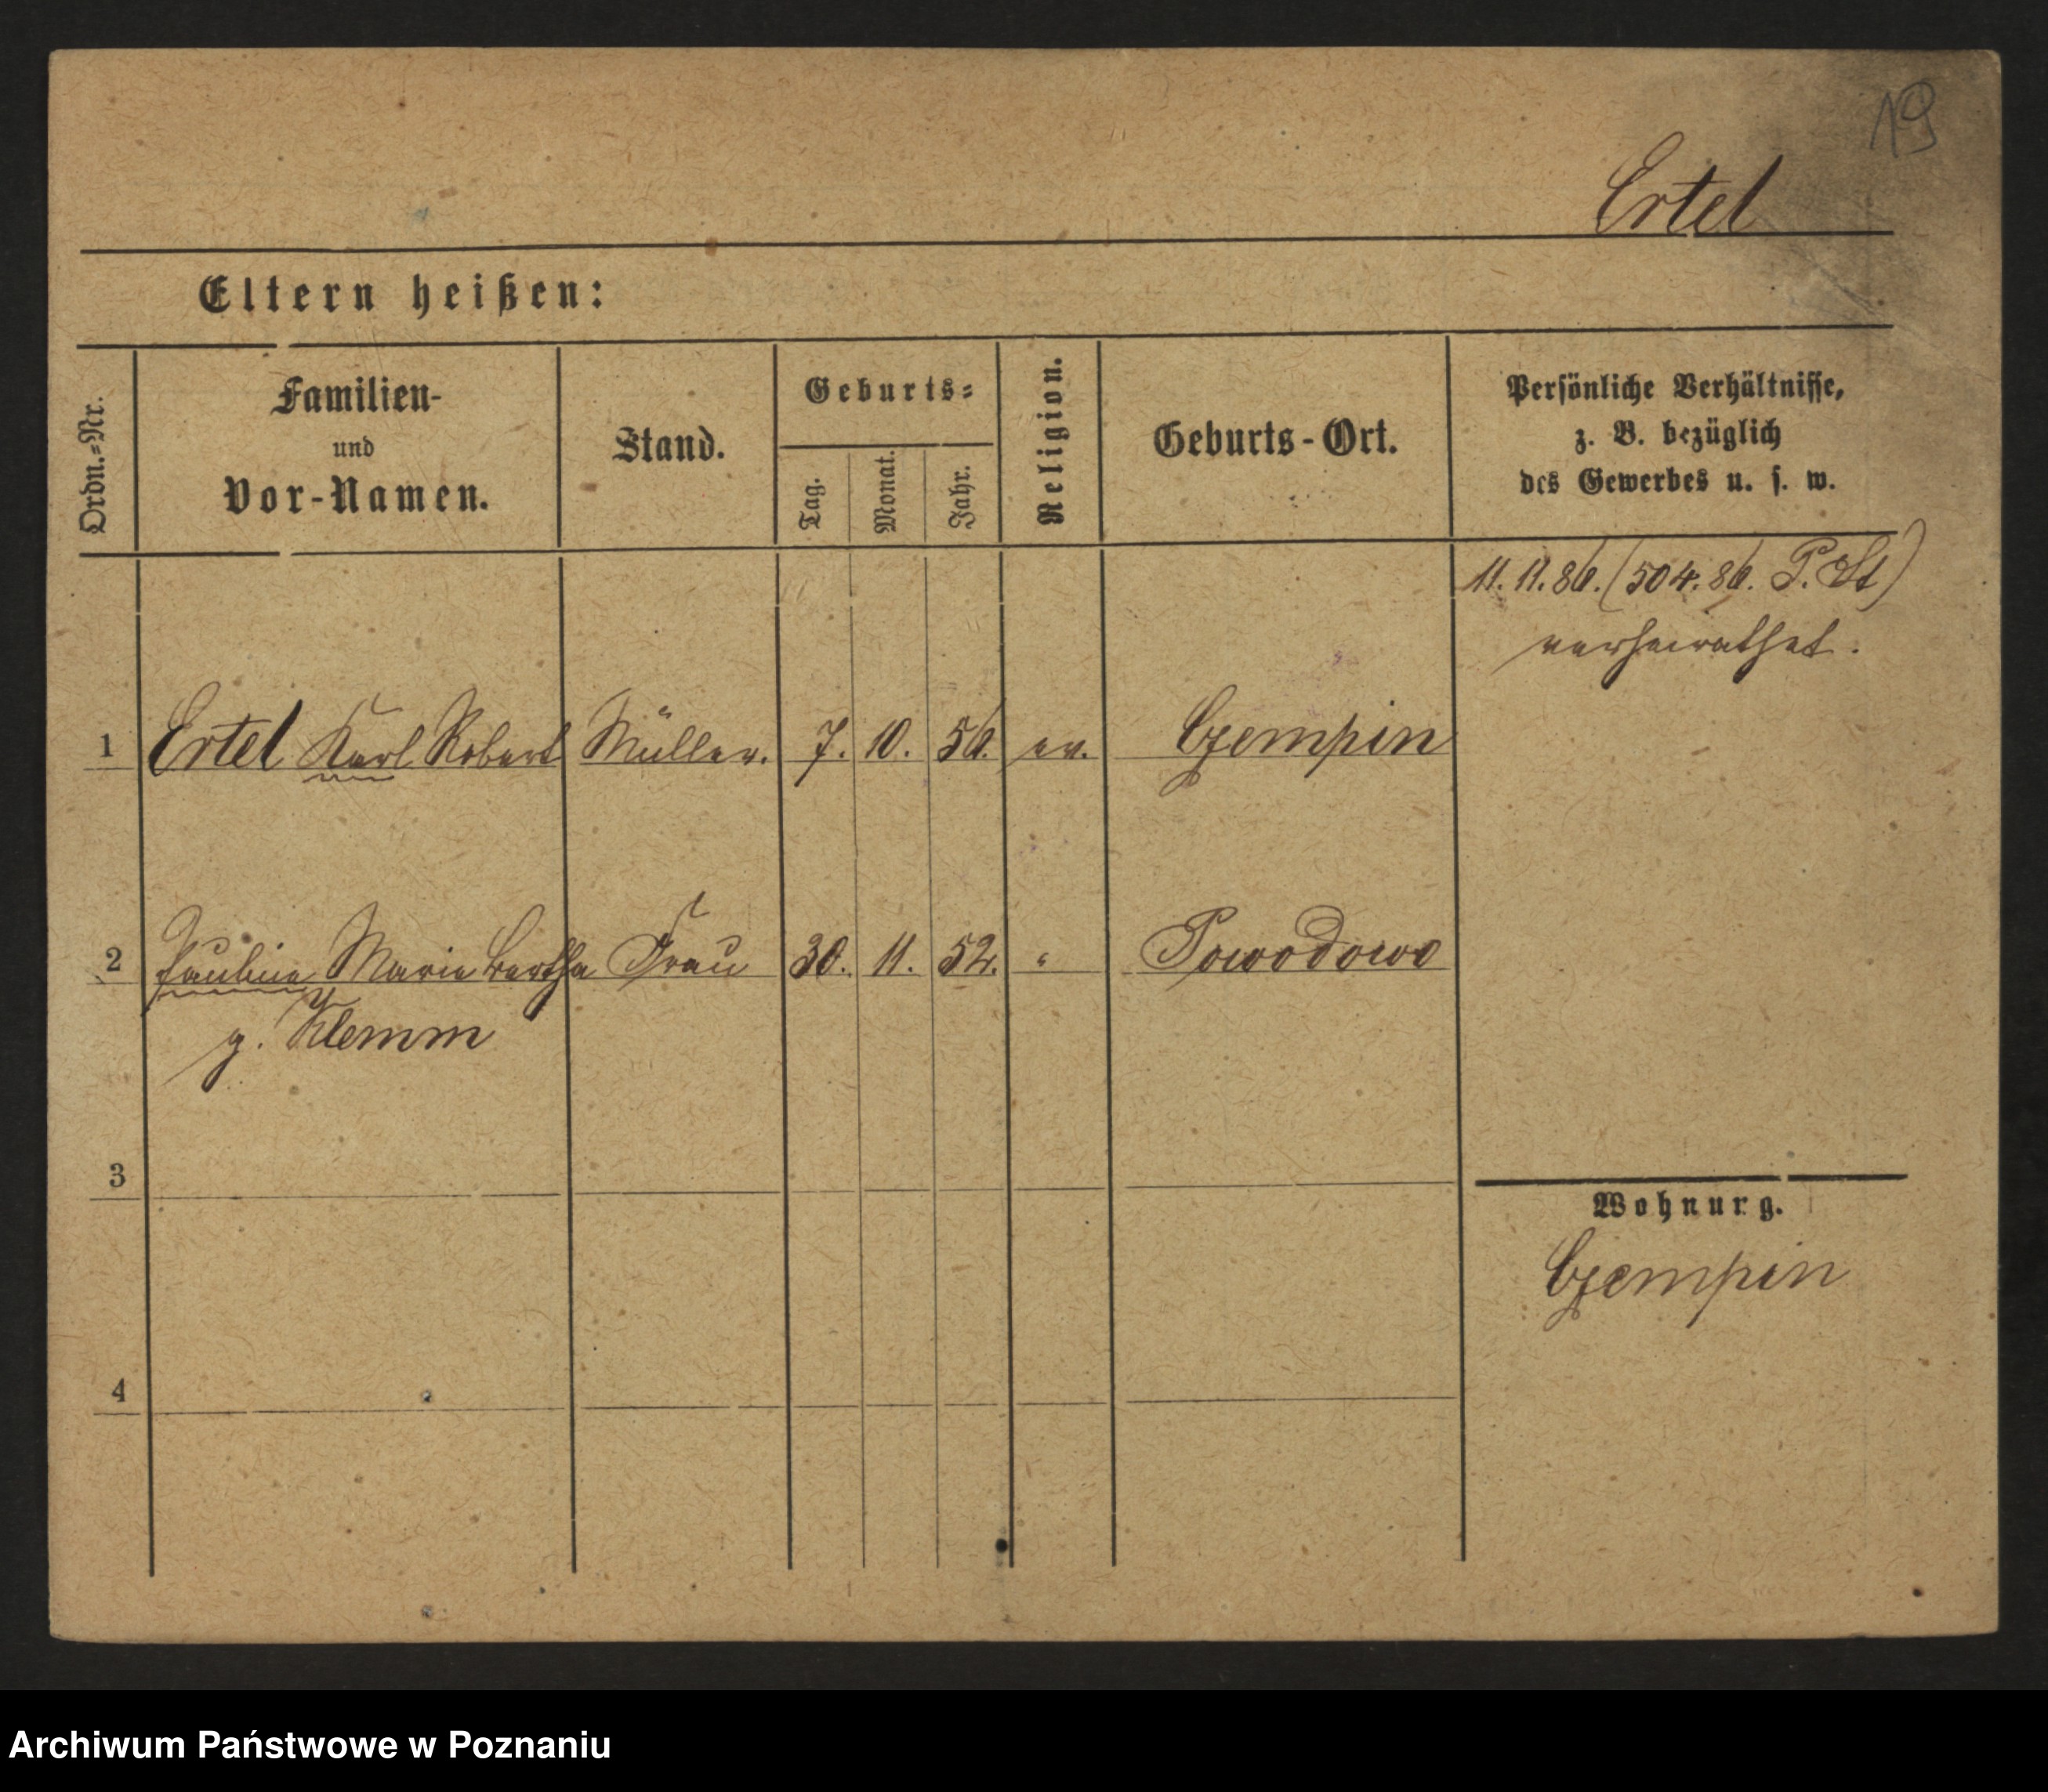 19
Ertel
Eltern heißen:
Ordn.-Nr.
Familien-
und
Vor-Namen.
Stand.
Geburts-
Tag.
Monat.
Jahr.
Religion.
Geburts-Ort.
Persönliche Verhältnisse,
z. B. bezüglich
des Gewerbes u. s. w.
11. 11. 86. (504. 86. P. St)
verheirathet.
1 Ertel Karl Robert Müller. 7. 10. 56. ev. Czempin
2 Pauline Marie Bertha Frau 30. 11. 52. " Powodowo
g. Klemm
3
Wohnung.
Czempin
4
Archiwum Państwowe w Poznaniu